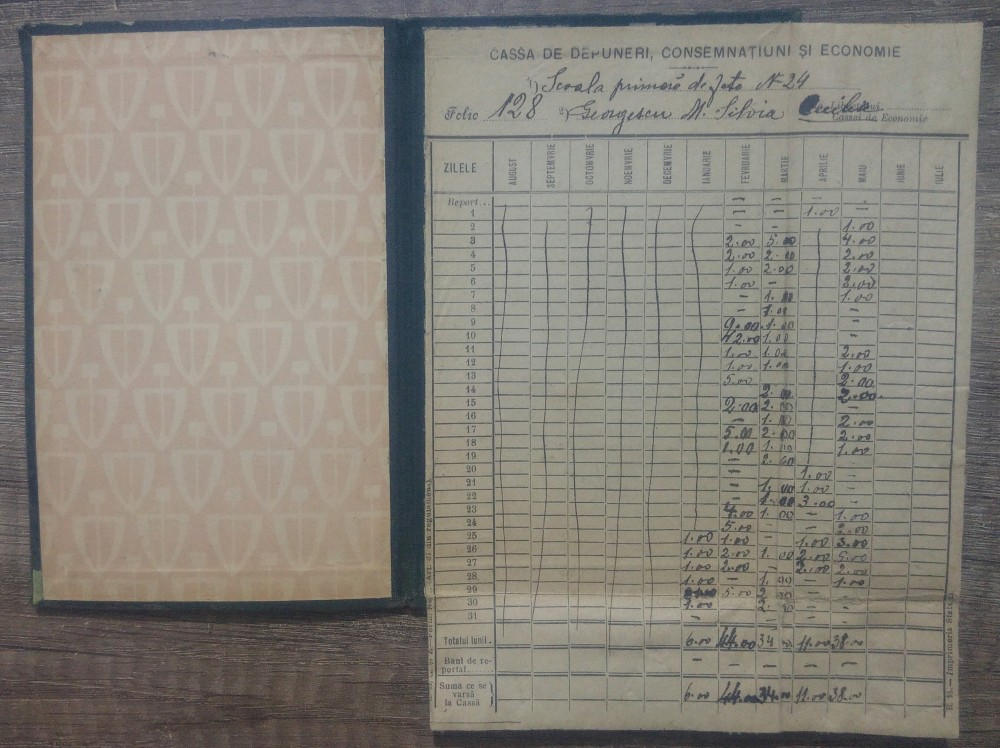 CASSA DE DEPUNERI, CONSEMNAȚIUNI ȘI ECONOMIE
1) Scoala primară de fete N-24
Folio 128 2) Georgescu M. Silvia
Cassei de Economie
ZILELE AUGUST SEPTEMVRIE OCTOMVRIE NOEMVRIE DECEMVRIE IANUARIE FEVRUARIE MARTIE APRILIE MAIU IUNIE IULIE
Report... — — — —
1 — — 1.00
2 — — 1.00
3 2.00 5.00 4.00
4 2.00 2.00 2.00
5 1.00 2.00 2.00
6 1.00 —
7 — 1.00 1.00
8 — —
9 1.00 —
10 1.00 —
11 1.00 1.00 2.00
12 1.00 1.00 1.00
13 5.00 2.00
14 2.00 2.00
15 2.00 2.00 —
16 — 1.00 2.00
17 5.00 2.00 2.00
18 1.00 1.00 1.00
19 — 2.00
20 — 1.00 —
21 — 1.00 1.00 —
22 — 1.00 3.00 —
23 4.00 1.00 1.00
24 5.00 — — 2.00
25 1.00 1.00 — 1.00 3.00
26 1.00 2.00 1.00 2.00
27 1.00 2.00 — 2.00 2.00
28 1.00 — 1.00 — 1.00
29 5.00 2.00 — —
30 1.00 2.00 — —
31 — — —
Totalul lunii. 6.00 44.00 34.00 11.00 38.00
Bani de re-
portat...... — — — — —
Suma ce se
varsă
la Cassă 6.00 44.00 34.00 11.00 38.00
Imprimeria Statului